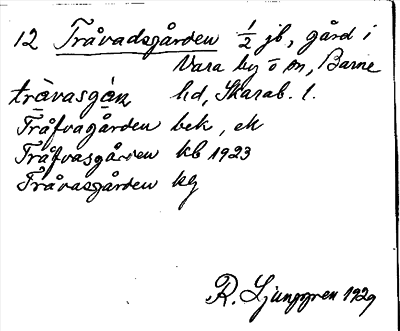 12 Tråvadsgården 1/2 jb, gård i
Vara by o sn, Barne
trävasgán hd, Skarab. l.
Tråfvagården bek, ek
Tråfvasgården kb 1923
Tråvasgården kg
R. Ljunggren 1929